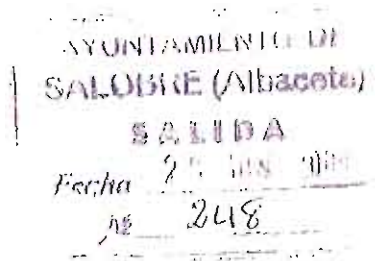 AYUNTAMIENTO DE
SALOBRE (Albacete)
SALIDA
Fecha
Nº 248